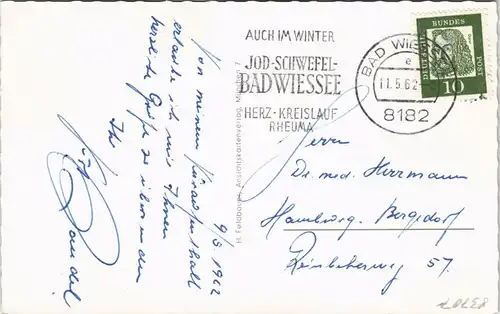 9/5 1962
Von meinem Kuraufenthalt
erlaube ich mir Ihnen
herzliche Grüße zu übersenden
Ihr
AUCH IM WINTER
JOD-SCHWEFEL-
BAD WIESSEE
HERZ-KREISLAUF
RHEUMA
BAD WIE
e
11.5.62
8182
DEUTSCHE
BUNDES
POST
10
Herrn
Dr. med. Herrmann
Hamburg. Bergedorf
Reinbekerweg 57.
Ansichtskartenverlag, München 7